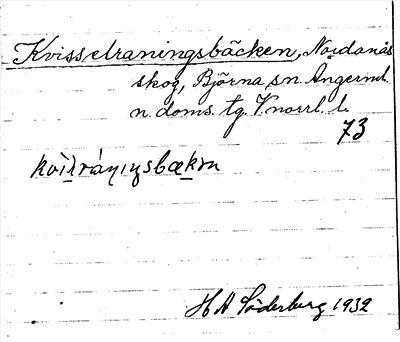 Kvisselraningsbäcken, Nordanås
skog, Björna sn. Ångerml.
n. doms. tg. V.norrl. l.
73
kvìs̱ḻráṉıṉsbæḵən
H A Söderberg 1932